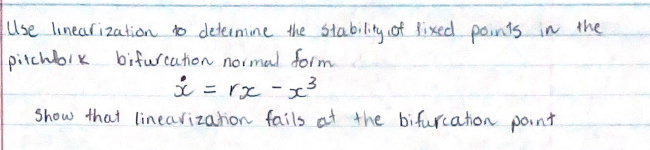 Use linearization to determine the stability of fixed points in the
pitchfork bifurcation normal form
ẋ = rx - x³
Show that linearization fails at the bifurcation point